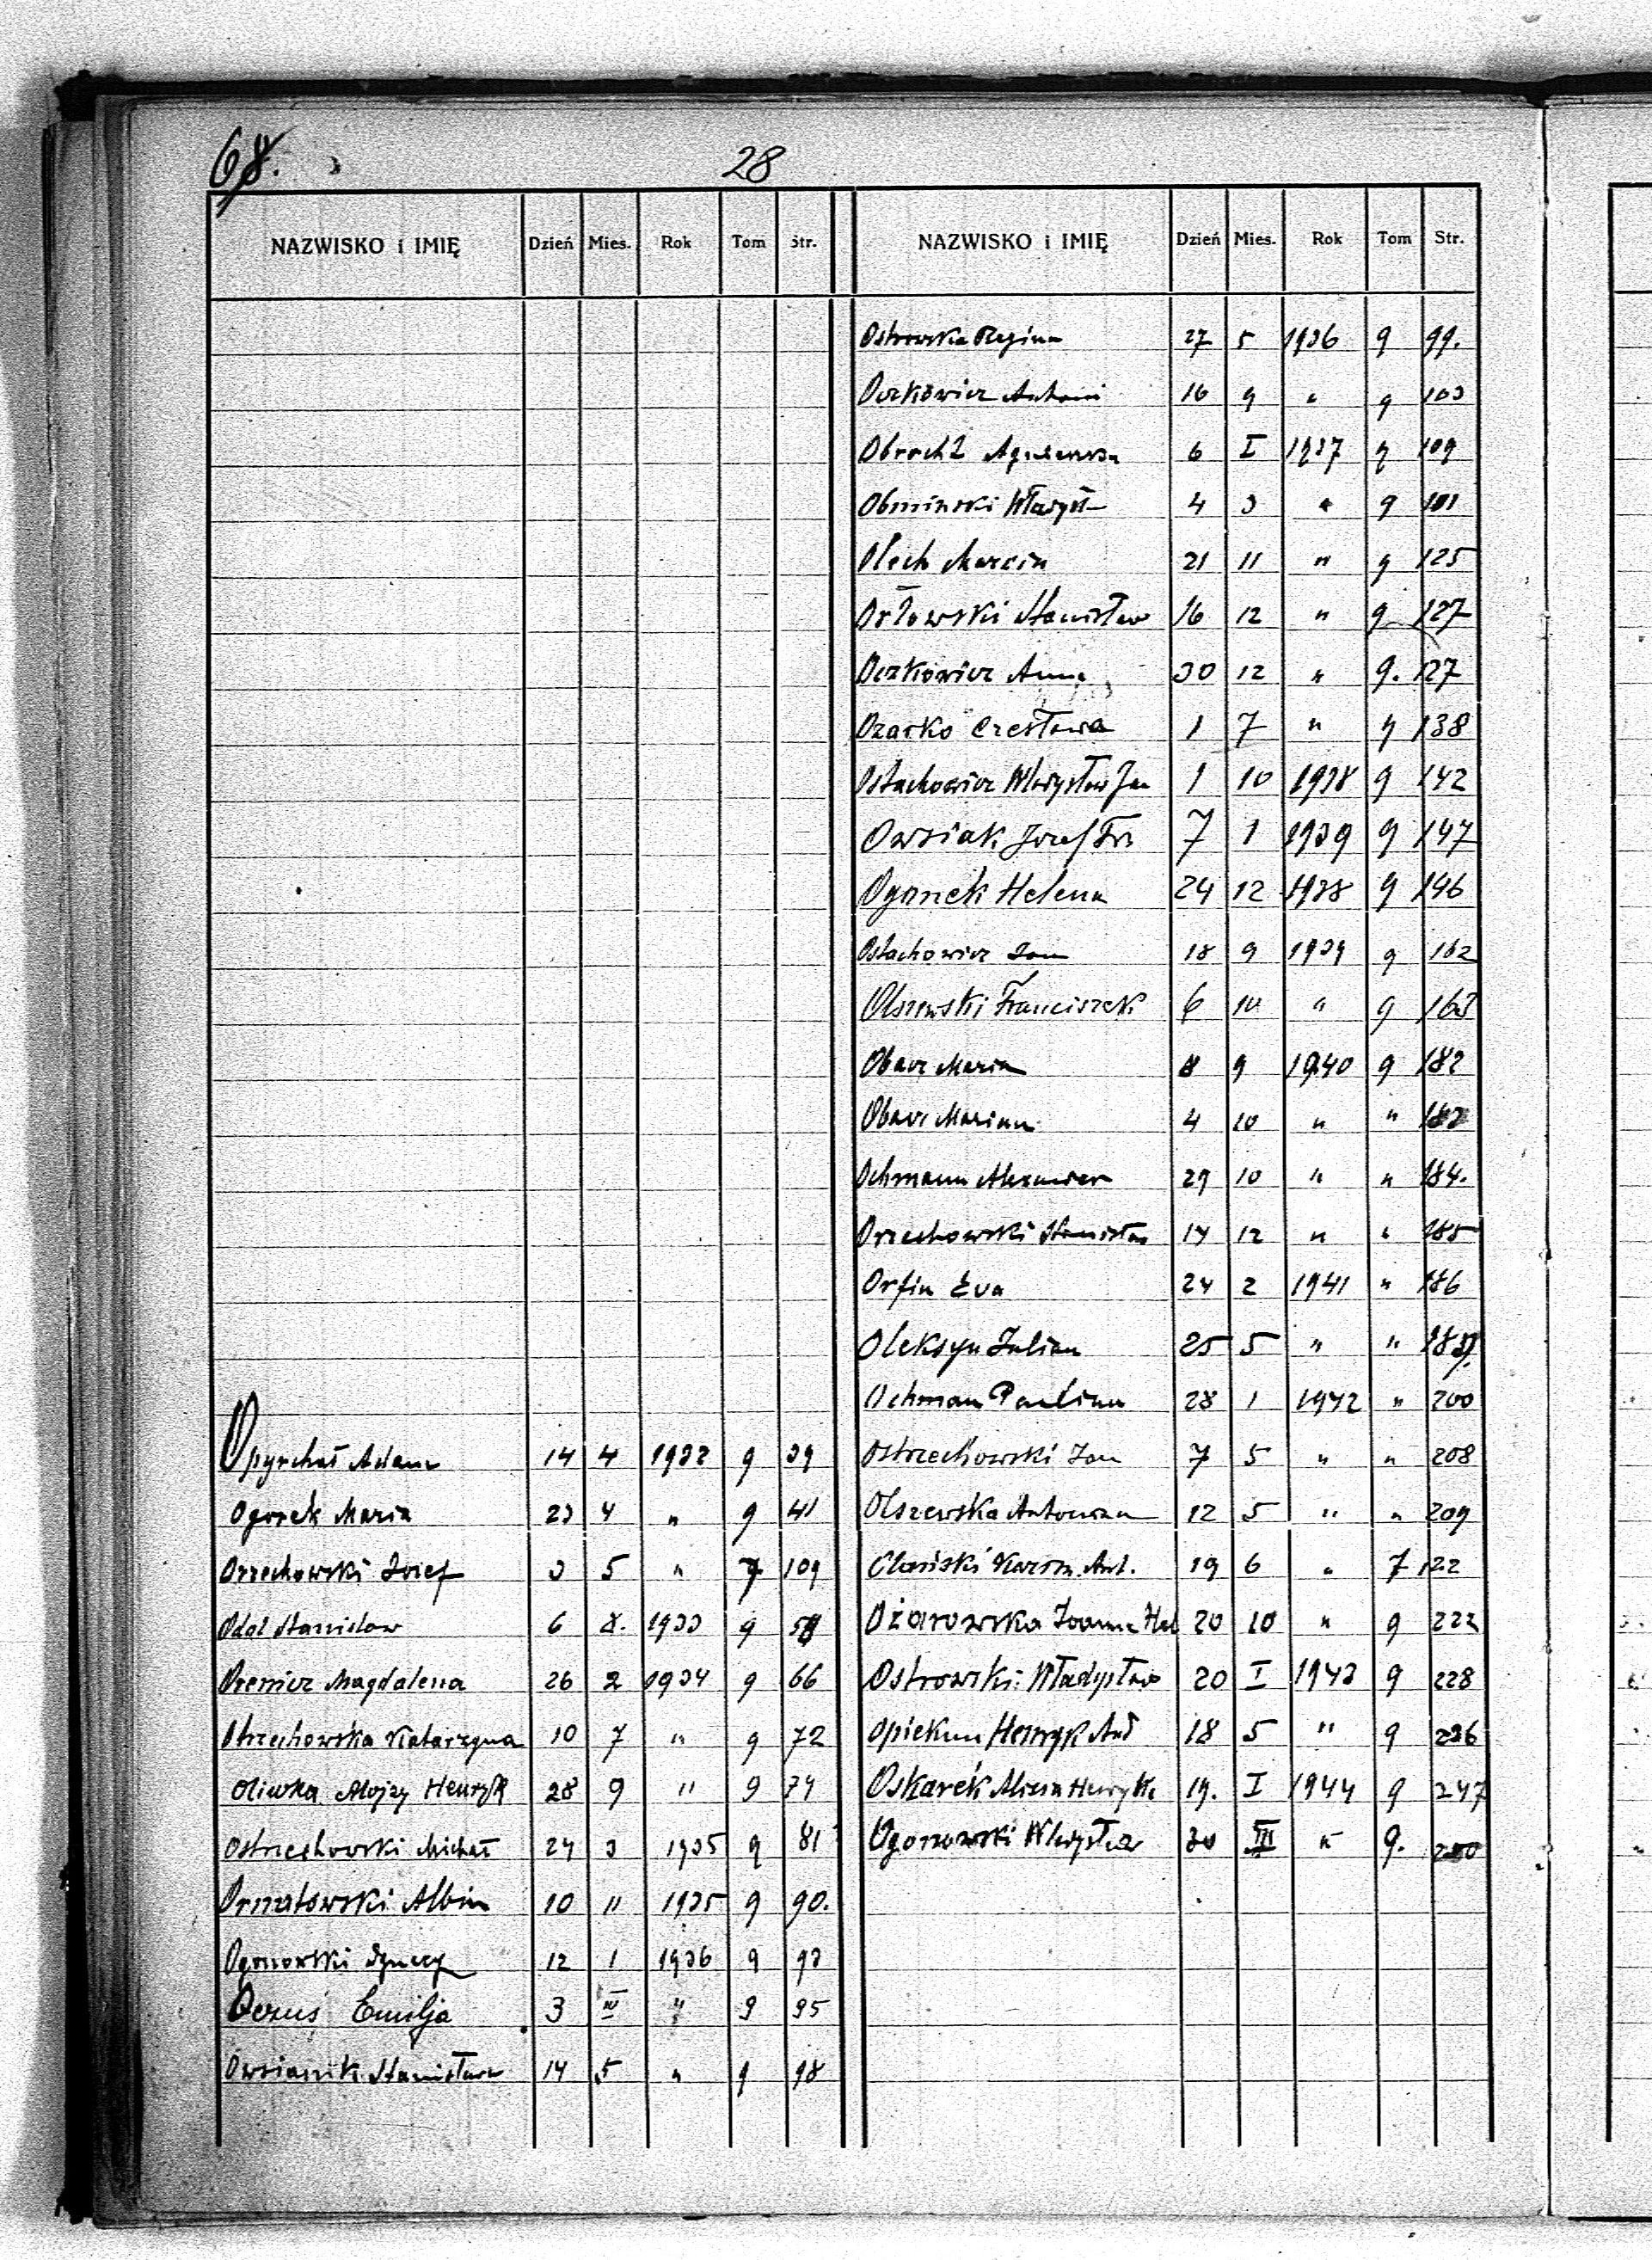 68. 28
NAZWISKO i IMIĘ Dzień Mies. Rok Tom Str.
Opyrchał Adam 14 4 1932 9 39
Ogorek Maria 23 4 " 9 41
Orzechowski Józef 3 5 " 7 109
Odol Stanisław 6 X. 1933 9 58
Magdalena 26 2 1934 9 66
Ostrzechowska Katarzyna 10 7 " 9 72
Oliwka Alojzy Henryk 28 9 " 9 74
Ostrzechowski Michał 24 3 1935 9 81
Ornatowski Albin 10 11 1935 9 90.
Ogonowski Ignacy 12 1 1936 9 93
Oczuś Emilja 3 IV " 9 95
Owsianik Stanisława 14 5 " 9 98
NAZWISKO i IMIĘ Dzień Mies. Rok Tom Str.
Ostrowska Regina 27 5 1936 9 99.
Oczkowicz Antoni 16 9 " 9 103
Agnieszka 6 I 1937 9 109
Obmiński Władysł 4 3 " 9 101
Olech Marcin 21 11 " 9 125
Orłowski Stanisław 16 12 " 9 127
Oczkowicz Anna 30 12 " 9. 127
Ozarko Czesława 1 7 " 9 138
Ostachowicz Władysław Jan 1 10 1938 9 142
Owsiak Józef Fr. 7 1 1939 9 147
Ogonek Helena 24 12 1938 9 146
Ostachowicz Jan 18 9 1939 9 162
Olszewski Franciszek 6 10 " 9 163
Obarz Maria 8 9 1940 9 182
Obarz Marian 4 10 " " 183
Ochmann 29 10 " " 184.
Orzechowski Stanisław 14 12 " " 185
Orfin Eva 24 2 1941 " 186
Oleksyn Julian 25 5 " "
Ochman Paulina 28 1 1942 " 200
Ostrzechowski Jan 7 5 " " 208
Olszewska Antonina 12 5 " " 209
Kazim. Ant. 19 6 " 7 122
Ożarowska Joanna Hel 20 10 " 9 222
Ostrowski Władysław 20 I 1943 9 228
Opiekun Henryk Ant 18 5 " 9 236
Oskarek Alicia Henryka 19. I 1944 9 247
Ogonowski Władysław 30 III " 9. 250